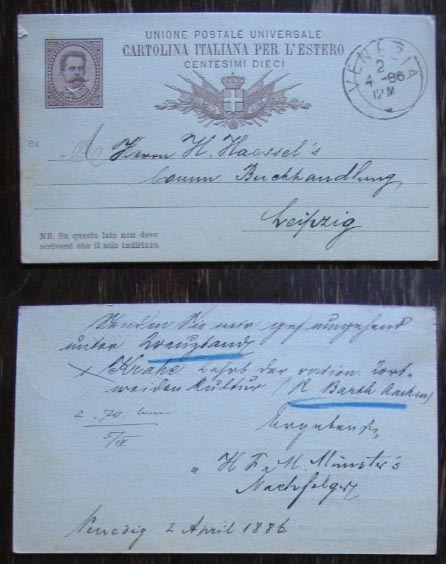 UNIONE POSTALE UNIVERSALE
CARTOLINA ITALIANA PER L'ESTERO
CENTESIMI DIECI
VENEZIA
2
4-86
12 M
84
A Herrn H. Haessel's
Comm. Buchhandlung
Leipzig
NB. Su questo lato non deve
scriversi che il solo indirizzo.
Senden Sie mir gef umgehend
unter Kreuzband
x Krahe Lehrb der ration. Korb-
weiden Kultur (R Barth Aachen)
2.70
Ergebenst
H F & M. Münster's
Nachfolger
Venedig 2 April 1886